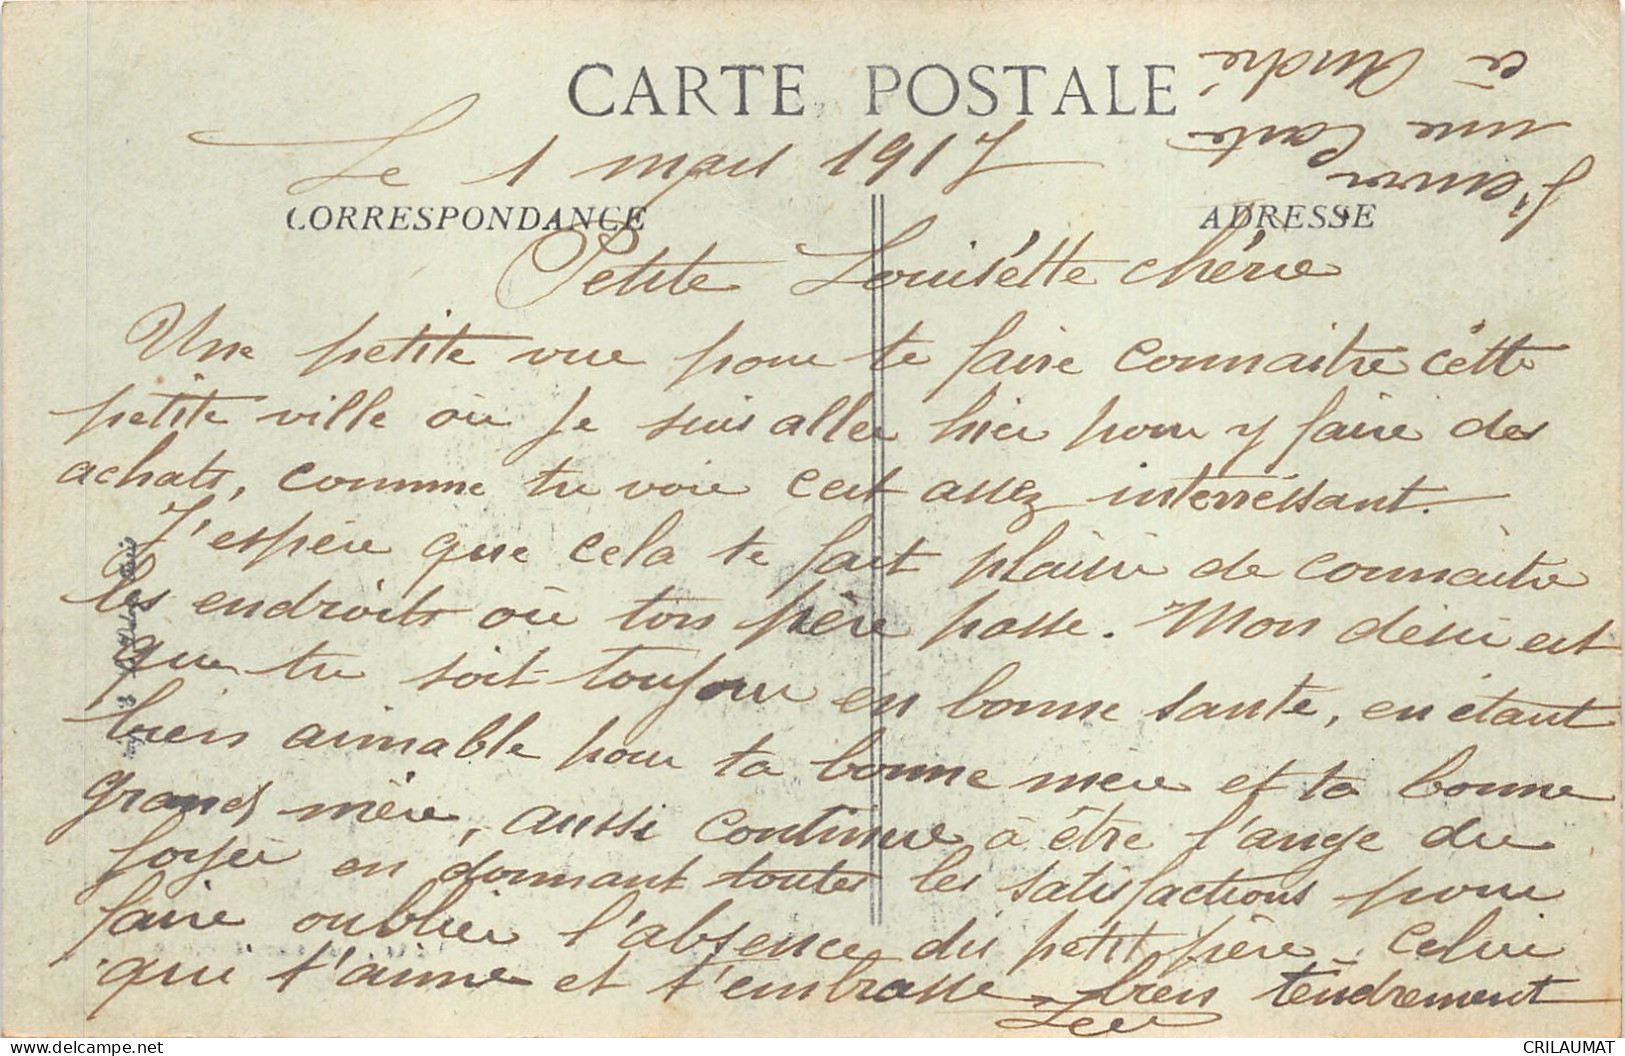 CARTE POSTALE
Le 1 mars 1917
CORRESPONDANCE
ADRESSE
J'envoi
une Carte
à André
Petite Louisétte chérie
Une petite vue pour te faire connaitre cette
petite ville où je suis aller hier pour y faire des
achats, comme tu voie c'est assez interréssant.
J'espère que cela te fait plaisir de connaitre
les endroits où ton père passe. Mon désir est
que tu soit toujour en bonne santé, en étant
bien aimable pour ta bonne mère et ta bonne
grand mère, aussi continue à être l'ange du
foyer en donnant toutes les satisfactions pour
faire oublier l'absence du petit père. Celui
qui t'aime et t'embrasse bien tendrement
CRILAUMAT